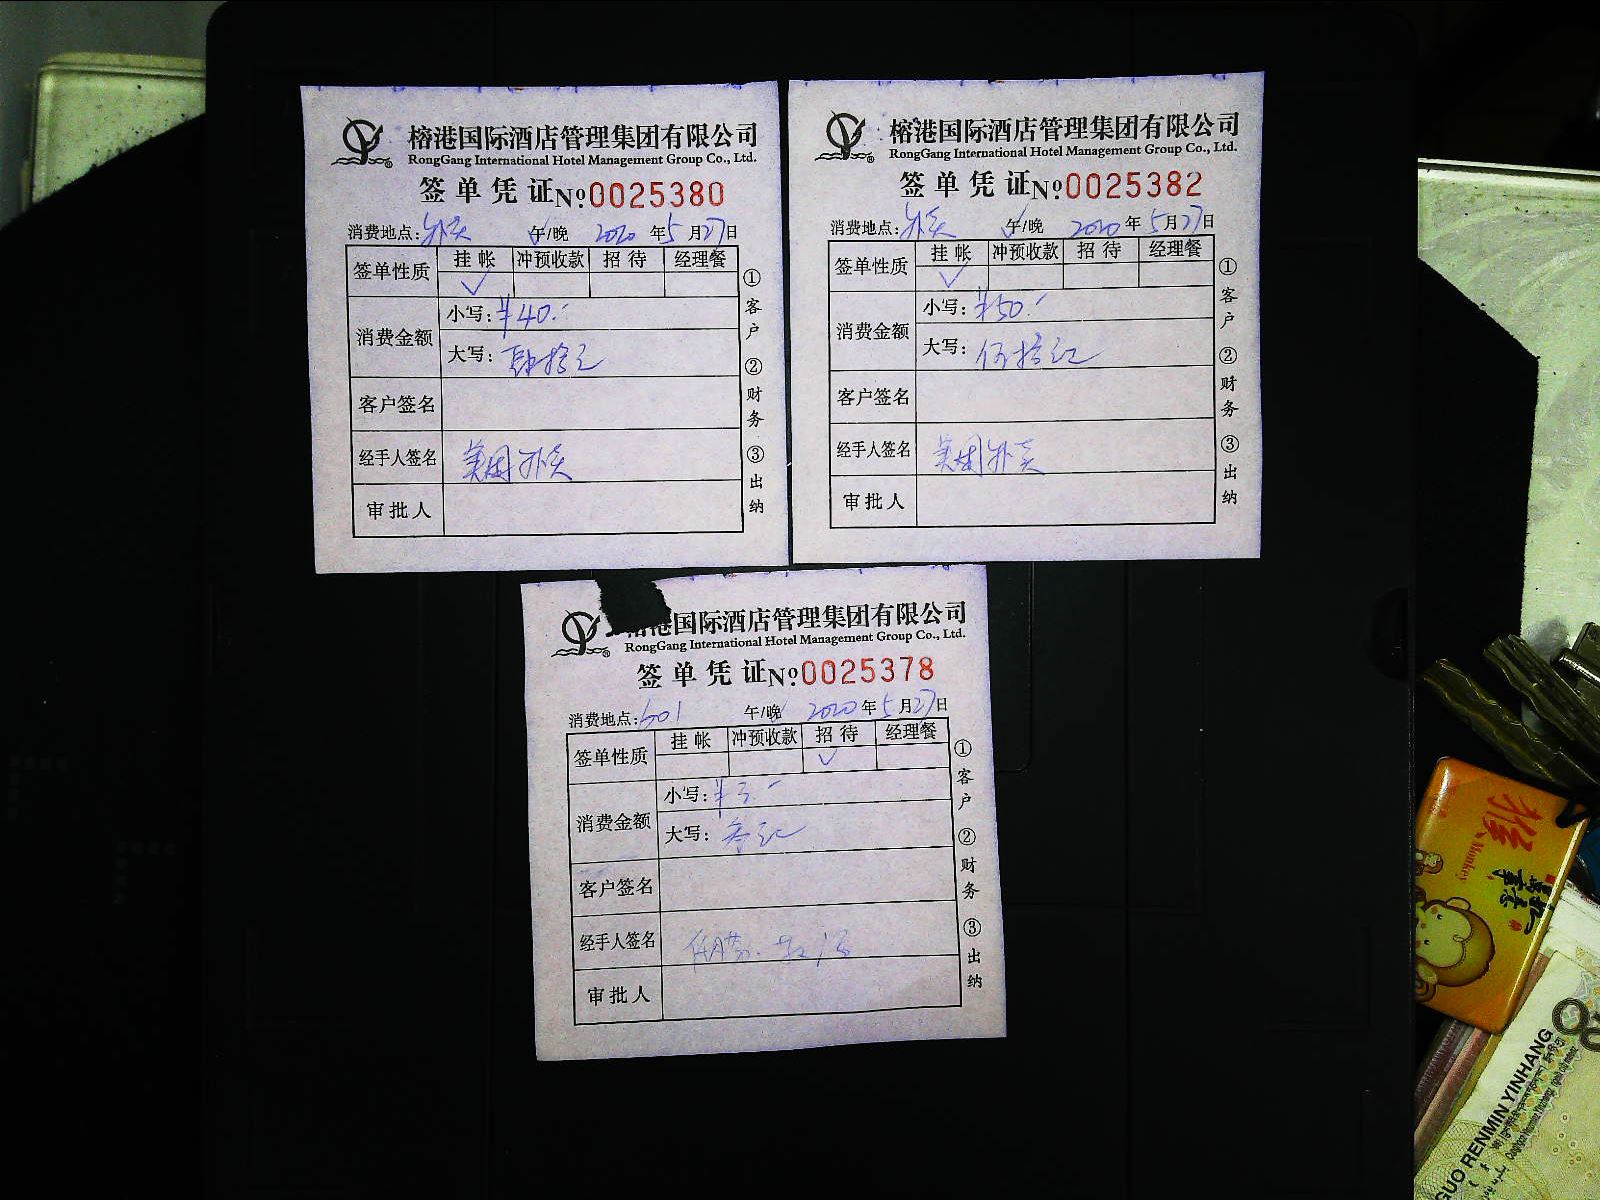 榕港国际酒店管理集团有限公司
RongGang International Hotel Management Group Co., Ltd.
签单凭证 № 0025380
消费地点: 外卖 午/晚 2020年5月27日
签单性质 挂帐 冲预收款 招待 经理餐
✓
消费金额 小写: ¥40.-
大写: 肆拾元
客户签名
经手人签名 美团外卖
审批人
①客户 ②财务 ③出纳
榕港国际酒店管理集团有限公司
RongGang International Hotel Management Group Co., Ltd.
签单凭证 № 0025382
消费地点: 外卖 午/晚 2020年5月27日
签单性质 挂帐 冲预收款 招待 经理餐
✓
消费金额 小写: ¥50.-
大写: 伍拾元
客户签名
经手人签名 美团外卖
审批人
①客户 ②财务 ③出纳
榕港国际酒店管理集团有限公司
RongGang International Hotel Management Group Co., Ltd.
签单凭证 № 0025378
消费地点: 601 午/晚 2020年5月27日
签单性质 挂帐 冲预收款 招待 经理餐
✓
消费金额 小写: ¥3.-
大写: 叁元
客户签名
经手人签名
审批人
①客户 ②财务 ③出纳
猴
Monkey
GUO RENMIN YINHANG